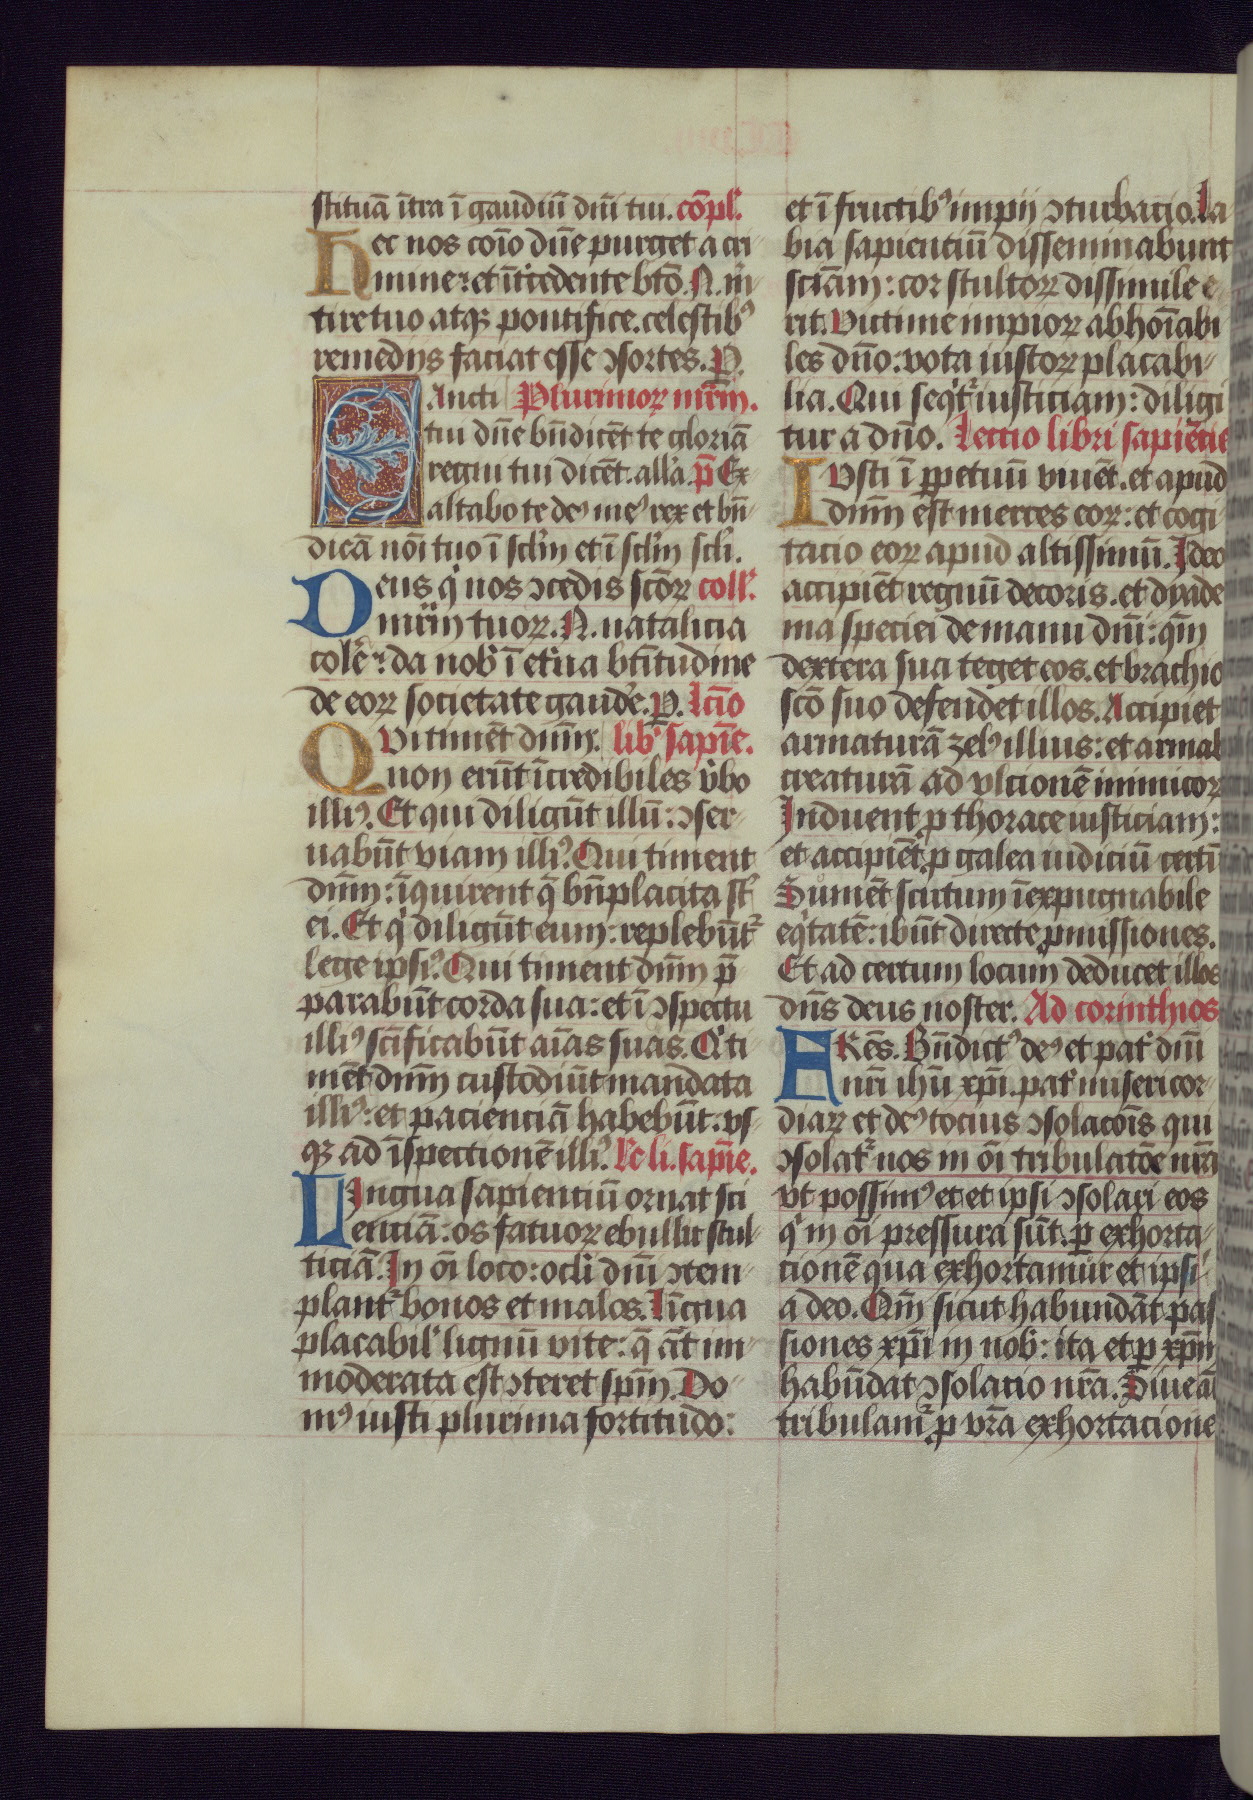 stituā ītra ī gaudiū dnī tui. cōpl'.
Hec nos coīo dn̄e purget a cri-
mine: et īt'cedente bt̄o. N. m̄r-
tire tuo atqꝫ pontifice. celestib⁹
remedijs faciat esse ꝯsortes. P.
Sancti Plurimoꝝ mr̄m.
tui dn̄e bn̄dicēt te gloriā
regni tui dicēt. all'a. p̄s Ex-
altabo te de⁹ me⁹ rex et bn̄-
dicā noī tuo ī scl'm et ī scl'm scl'i.
Deus q' nos ꝯcedis sc̄oꝝ coll'.
mr̄m tuoꝝ. N. natalicia
colē: da nob' ī et'na bt̄itudine
de eoꝝ societate gaudē. P. lc̄io
Qvi timēt dn̄m. lib' sapīe.
non erūt īcredibiles v'bo
illi⁹. Et qui diligūt illū: ꝯser-
uabūt viam illi⁹. Qui timent
dn̄m: īquirent q̄ bn̄placita sūt
ei. Et q' diligūt eum: replebūt'
lege ipsi⁹. Qui timent dn̄m p̄-
parabūt corda sua: et ī ꝯspectu
illi⁹ scīficabūt aīas suas. Q' ti-
mēt dn̄m custodiūt mandata
illi⁹: et pacienciā habebūt: vs-
qꝫ ad īspectionē illi⁹. Lc̄ li. sapīe.
Lingua sapientiū ornat sci
enciā: os fatuoꝝ ebullit stul-
ticiā. In oī loco: ocl'i dnī ꝯtem-
plant' bonos et malos. Līgua
placabil' lignū vite: q̄ āt im-
moderata est ꝯteret spm̄. Do-
m⁹ iusti plurima fortitudo:
et ī fructib⁹ impij ꝯturbacio. La
bia sapientiū disseminabunt
sciam: cor stultoꝝ dissimile e-
rit. Victime impioꝝ abhoīabi
les dn̄o: vota iustoꝝ placabi-
lia. Qui seq't' iusticiam: diligi
tur a dn̄o. Lectio libri sapiētie
Iusti ī ꝑpetuū viuēt. et apud
dn̄m est merces eoꝝ: et cogi
tacio eoꝝ apud altissimū. Ideo
accipiēt regnū decoris. et dyade
ma speciei de manu dnī: qm̄
dextera sua teget eos. et brachio
sc̄o suo defendet illos. Accipiet
armaturā zel⁹ illius: et armab
creaturā ad vlcionē inimicoꝝ
Induent ꝓ thorace iusticiam:
et accipiēt ꝓ galea iudiciū certū
Sumēt scutum īexpugnabile
eq'tatē: ibūt directe ꝑmissiones.
Et ad certum locum deducet illos
dn̄s deus noster. Ad corinthios
FRēs. Bn̄dict⁹ de⁹ et pat' dnī
nr̄i ihū xp̄i. pat' misericor-
diaꝝ et de⁹ tocius ꝯsolacōis qui
ꝯsolat' nos in oī tribulatōe nr̄a
vt possim⁹ et et ipsi ꝯsolari eos
q' in oī pressura sūt. ꝑ exhorta-
cionē qua exhortamur et ipsi
a deo. Qm̄ sicut habundāt pas
siones xp̄i in nob': ita et ꝑ xp̄m
habūdat ꝯsolacio nr̄a. Siue āt
tribulam' ꝓ vr̄a exhortacione